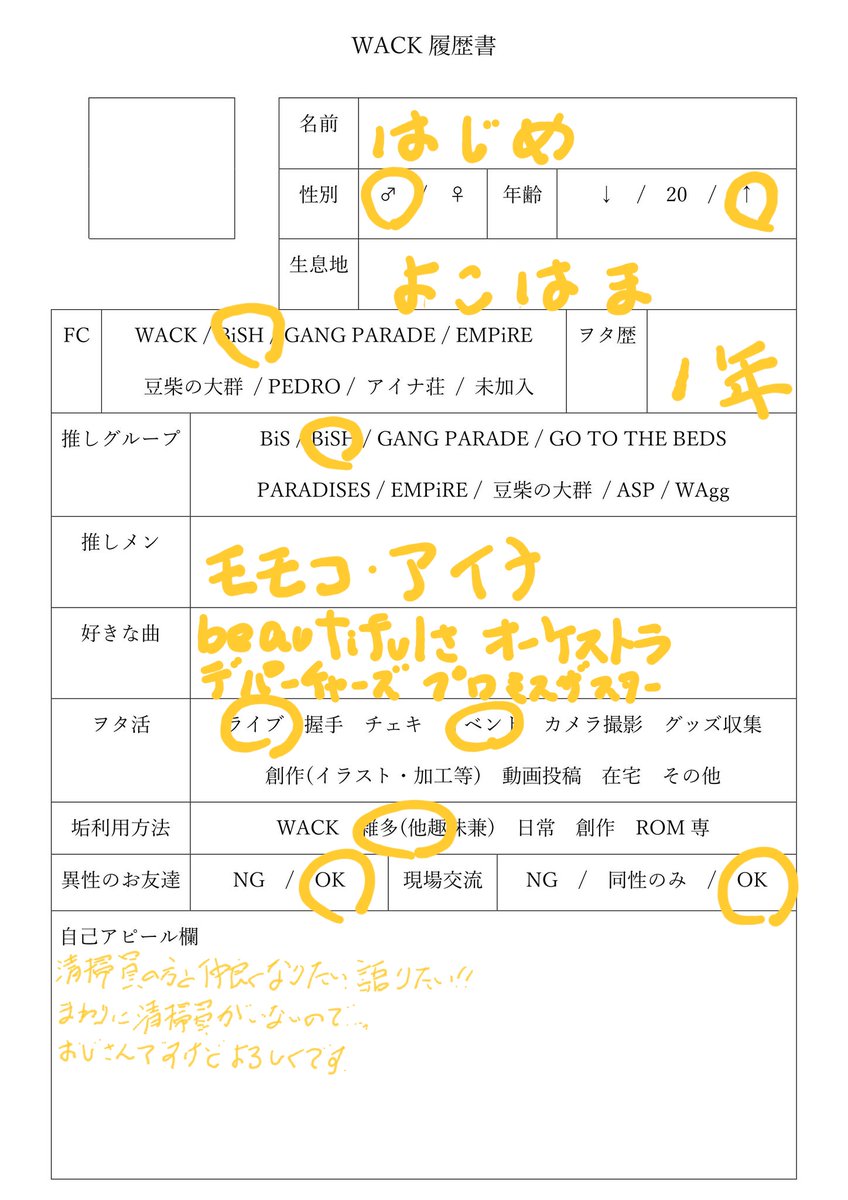 WACK 履歴書
名前 はじめ
性別 ♂ / ♀ 年齢 ↓ / 20 / ↑
生息地 よこはま
FC WACK / BiSH / GANG PARADE / EMPiRE ヲタ歴 1年
豆柴の大群 / PEDRO / アイナ荘 / 未加入
推しグループ BiS / BiSH / GANG PARADE / GO TO THE BEDS
PARADISES / EMPiRE / 豆柴の大群 / ASP / WAgg
推しメン モモコ・アイナ
好きな曲 beautifulさ オーケストラ
デパーチャーズ プロミスザスター
ヲタ活 ライブ 握手 チェキ ベント カメラ撮影 グッズ収集
創作(イラスト・加工等) 動画投稿 在宅 その他
垢利用方法 WACK 雑多(他趣味兼) 日常 創作 ROM専
異性のお友達 NG / OK 現場交流 NG / 同性のみ / OK
自己アピール欄
清掃員の方と仲良くなりたい語りたい!!
まわりに清掃員がいないので、
おじさんですけどよろしくです